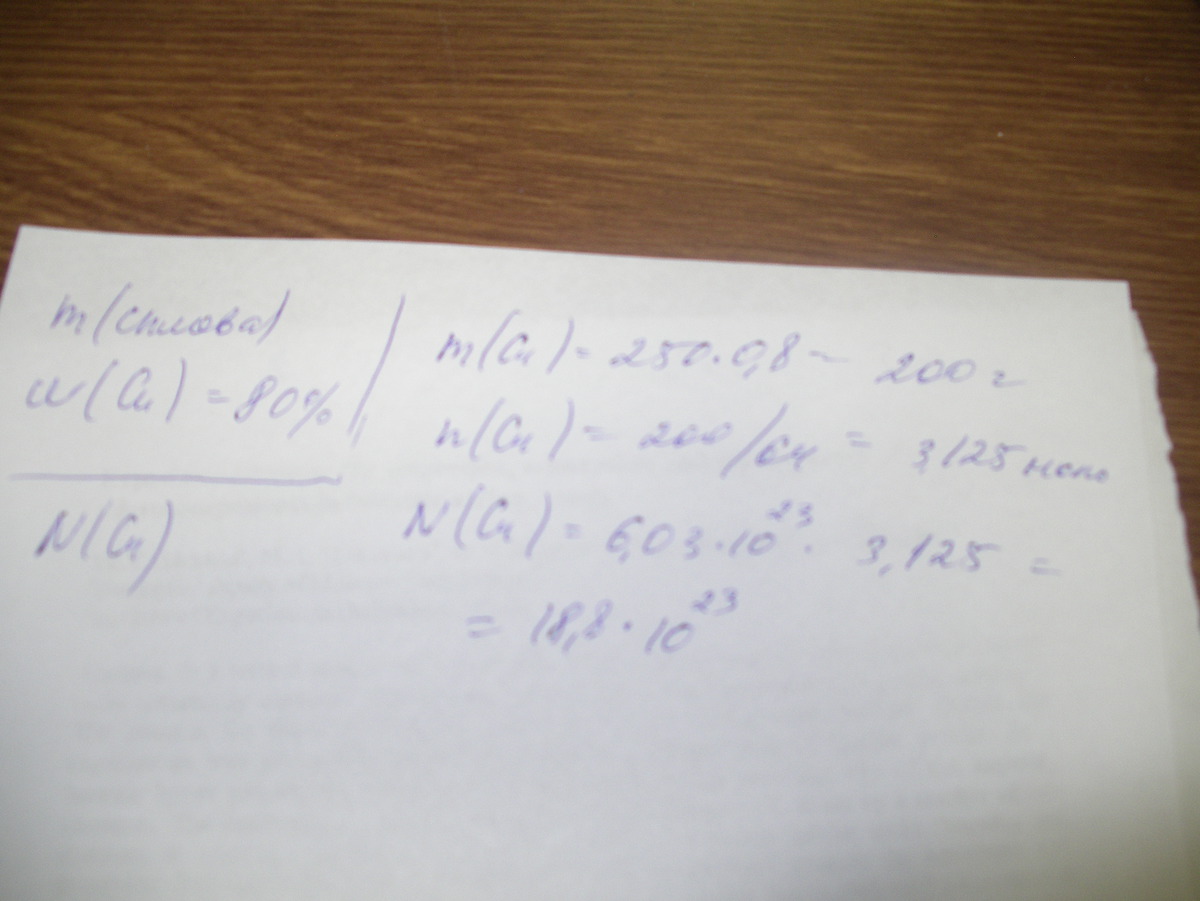 m(сплова)
w(Cu) = 80%
N(Cu)
m(Cu) = 250·0,8 = 200 г
n(Cu) = 200/64 = 3,125 моль
N(Cu) = 6,03·10²³· 3,125 =
= 18,8·10²³